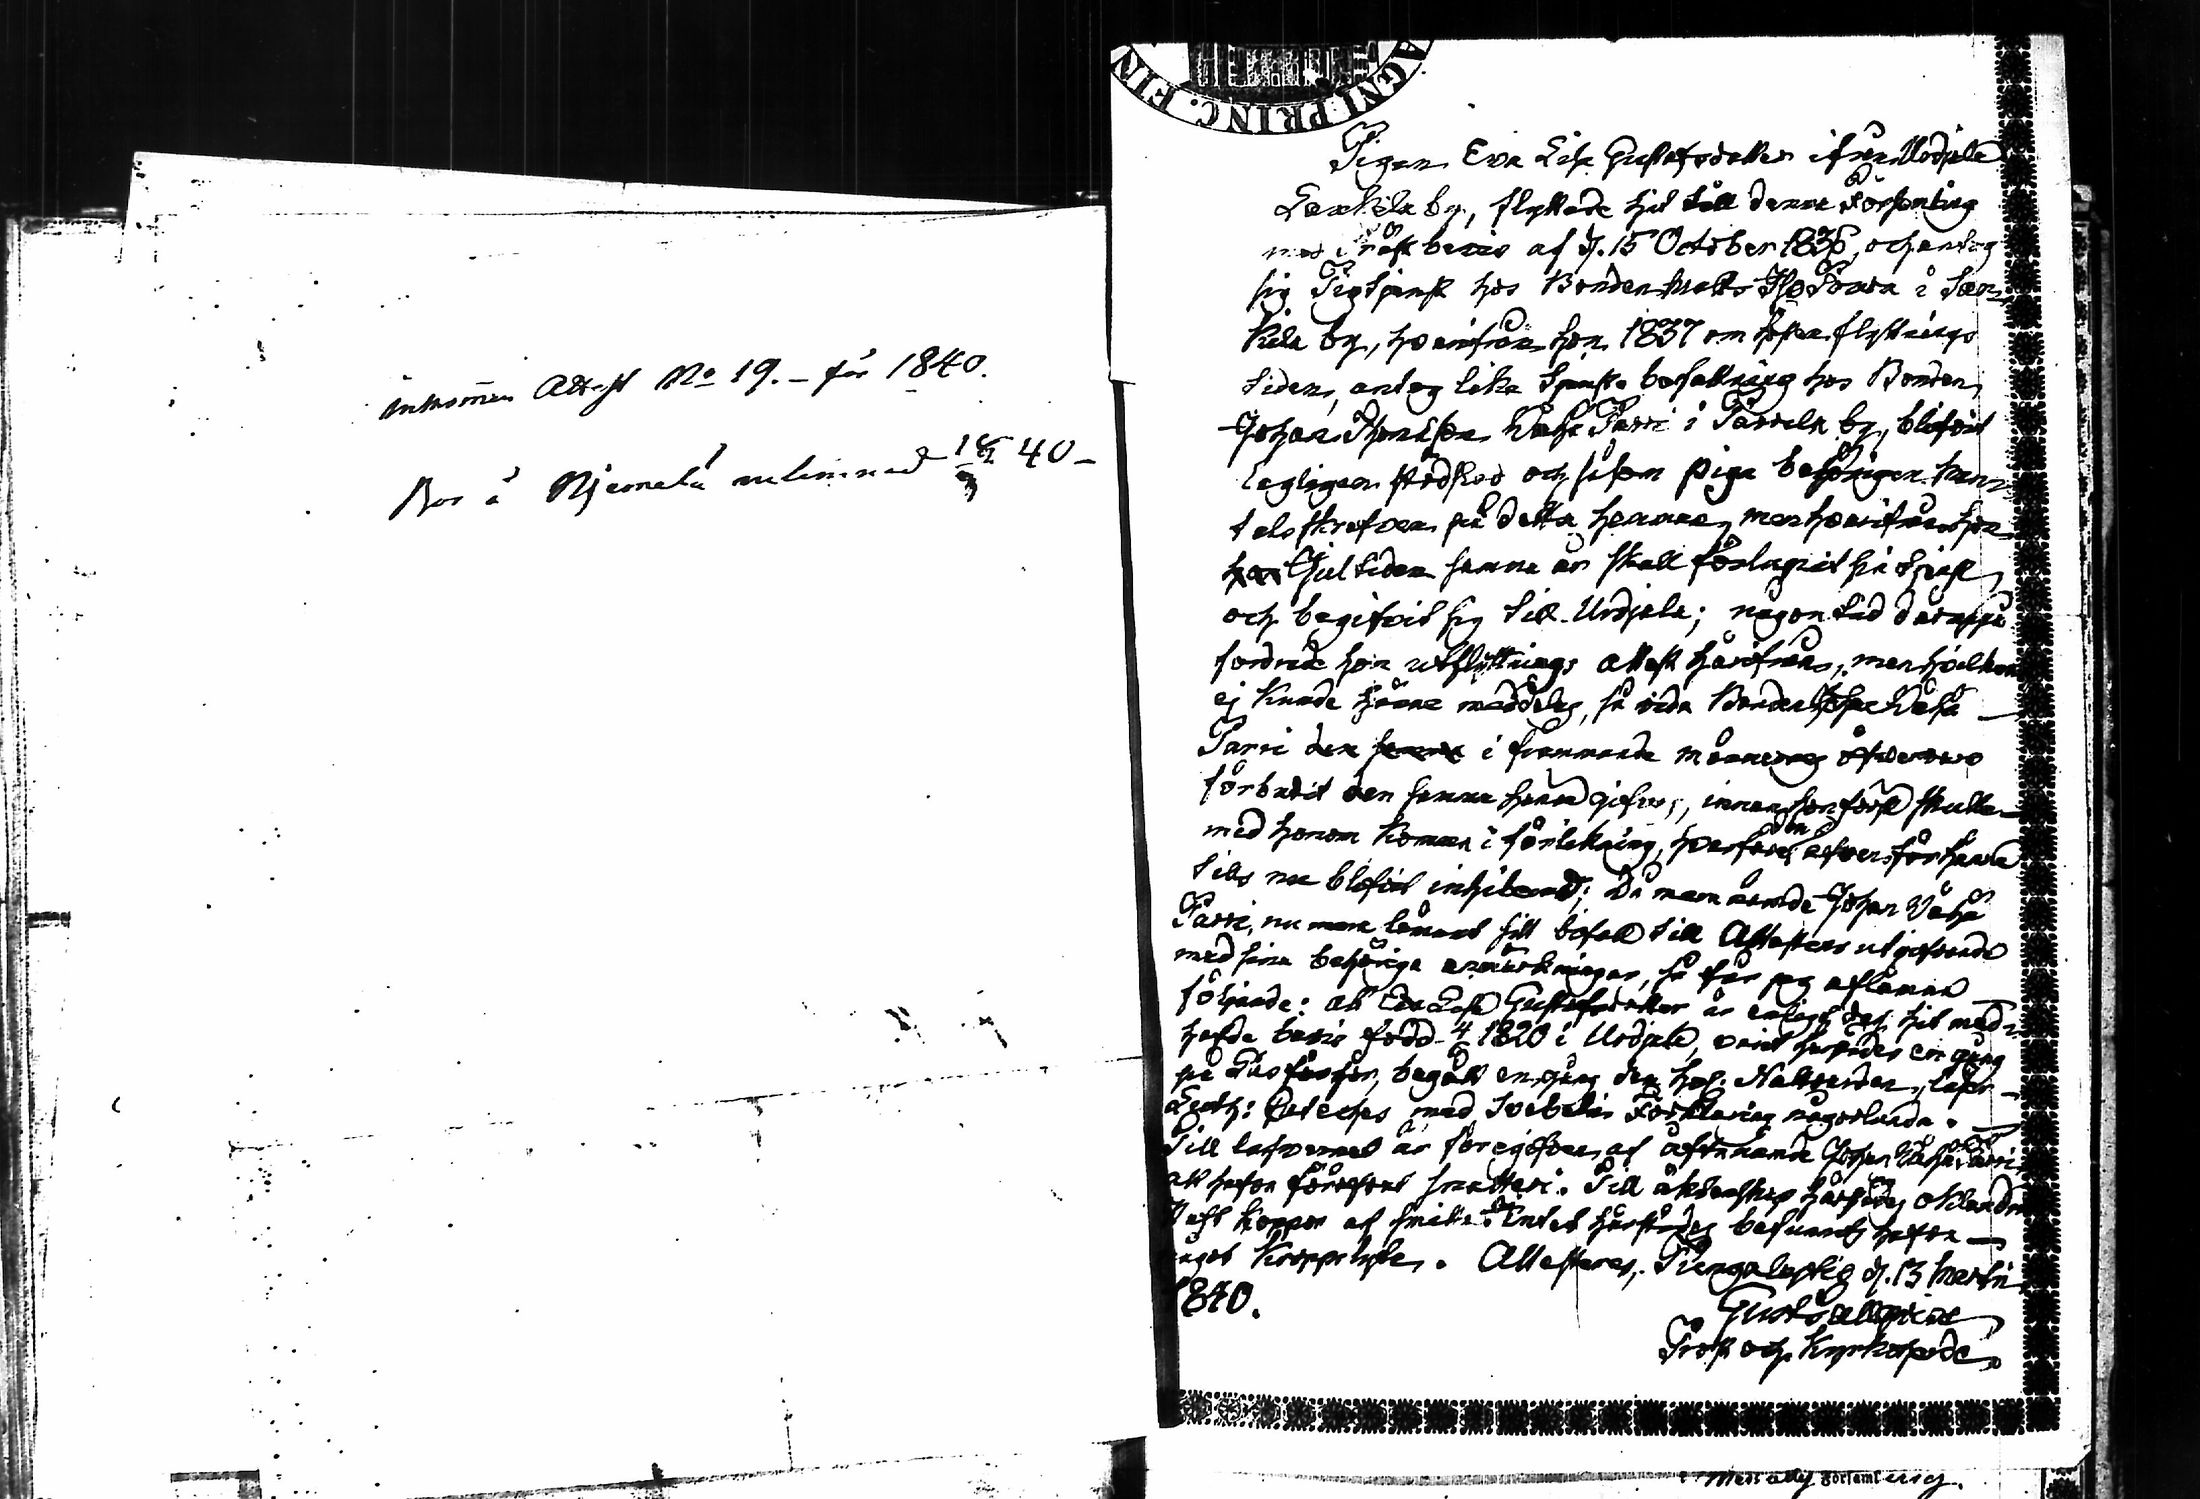 inkommen Attest No 19. – för 1840.
Bor å Njemelä
40 –
AGNI PRINC. FIN
Pigan Eva Lisa Gustafsdotter ifrån Urdjala
by, flyttade hit till denna Församling
med Prästbevis af d. 15 October 1836, och antog
sig Pigtjenst hos Bonden Matts i
kila by, hvarifrån hon 1837 om hösten flyttnings
tiden, antog lika tjenste befattning hos Bonden
Johan Thomasson Wähä Parri i by, blifvit
Lagligen städslad och såsom piga behörigen man
talsskrefven på detta hemman, men hvarifrån hon
Jultiden samma år skall förlupit sin tjenst,
och begifvit sig till Urdjala; någon tid derappå
fordrade hon utflyttnings attest härifrån, men hvilken
ej kunde henne meddelas, så vida Bonden Johan Wähä
Parri den i frammande månnernas öfvervaro
förbudit den samma henne gifvas, innan hon först skulle
med honom komma i förlikning, hvarföre den äfven för henne
tills nu blifvit inhiberad; Då nu mera nämnde Johan Wähä
Parri, nu mera lämnat sitt bifall till Attestens utgifvande
med sina behöriga anmärkningar, så får jag aflämna
följande: att Eva Lisa Gustafsdotter är enligt dess hit med
hafde bevis född 4/6 1820 i Urdjala, varit härstädes en gång
på Läsförhör, begått en gång den Hel. Nattvarden, läser
Luth: Cateches med Svebelii Förklaring någorlunda.
Till lefvernet är föregifven af oftanämnde Johan Wähä Parri,
att hafva föröfvat snatteri. Till äktenskap härstädes oklandrad
Haft koppor af smitta. Intet härstädes befunnits hafva
något kroppslyte. Attesteras, d. 13 Martii
1840.
Gust:
Prost och Kyrkoherde